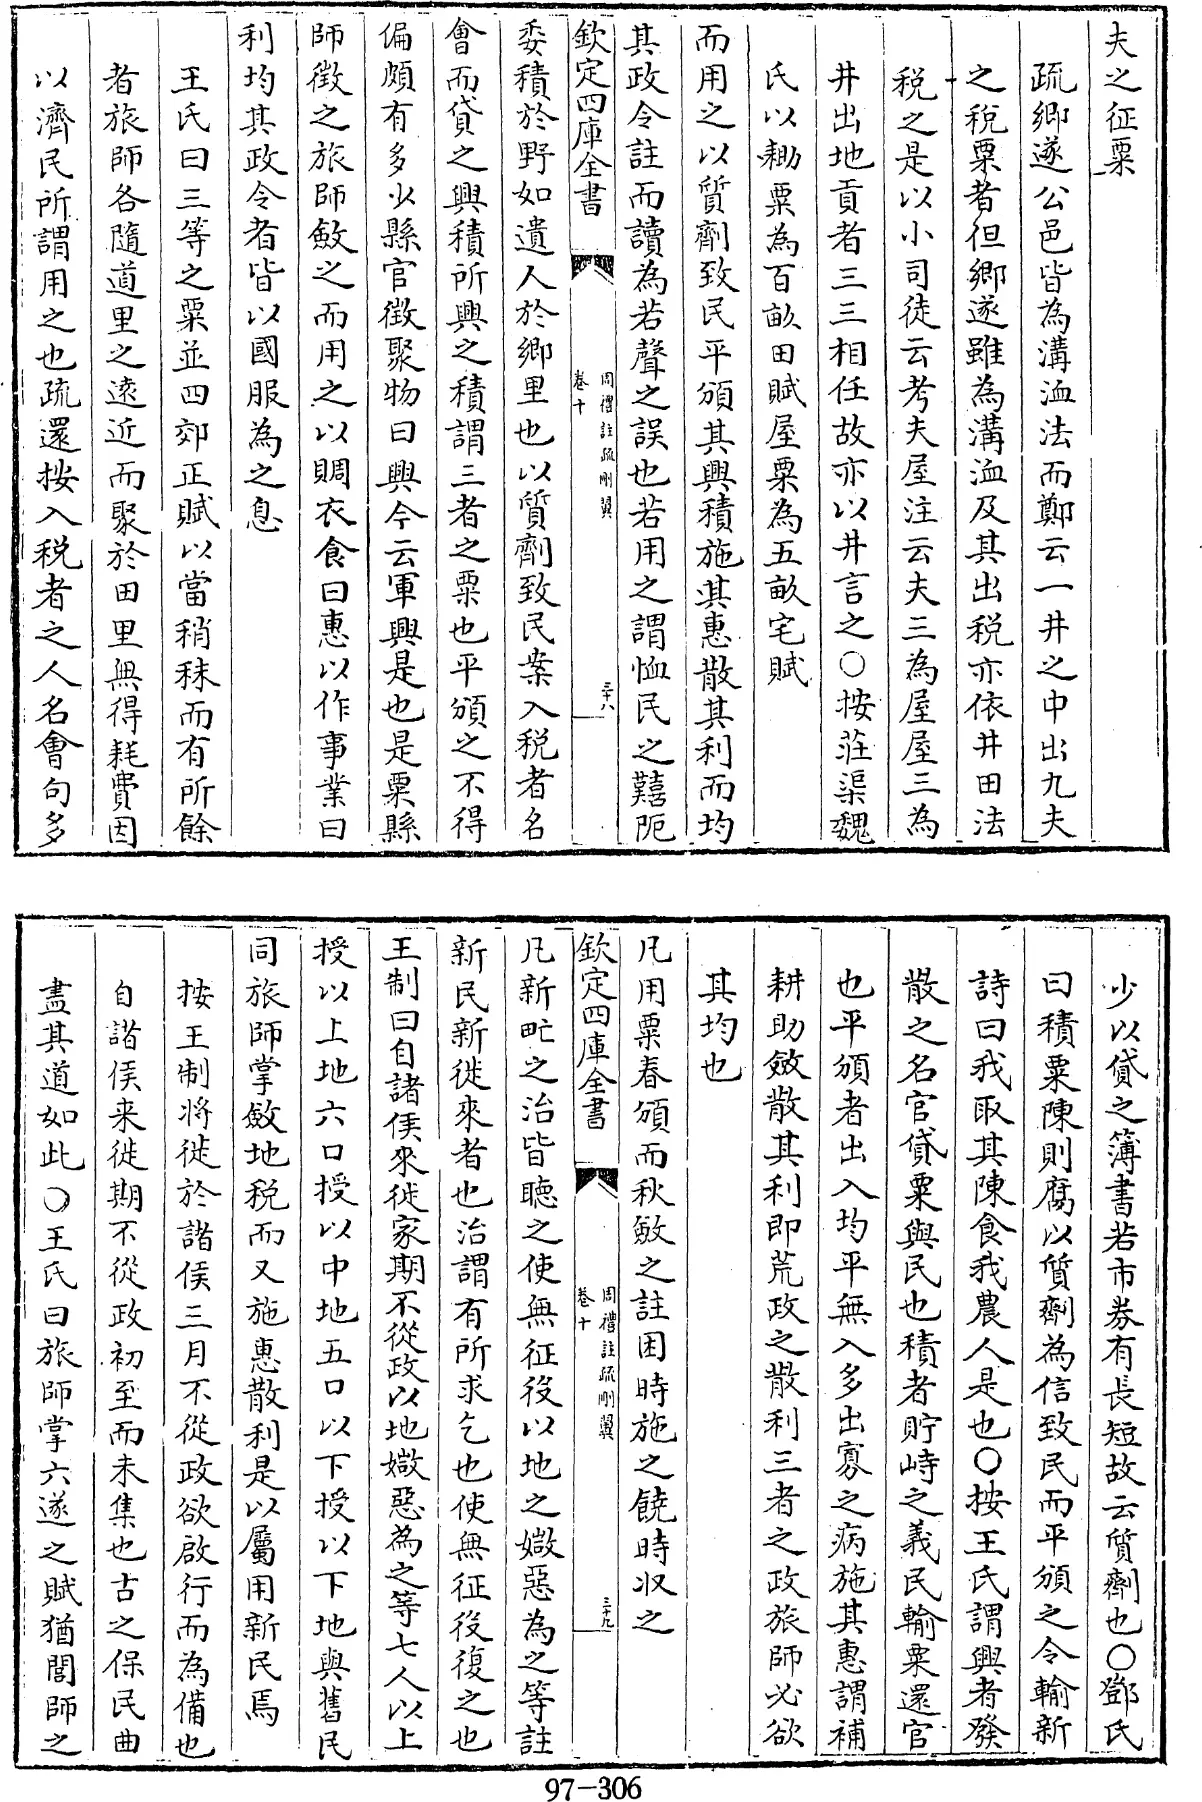 夫之征粟
疏鄉遂公邑皆為溝洫法而鄭云一井之中出九夫
之稅粟者但鄉遂雖為溝洫及其出稅亦依井田法
稅之是以小司徒云考夫屋注云夫三為屋屋三為
井出地貢者三三相任故亦以井言之○按莊渠魏
氏以耡粟為百畝田賦屋粟為五畝宅賦
而用之以質劑致民平頒其興積施其惠散其利而均
其政令註而讀為若聲之誤也若用之謂恤民之囏阨
欽定四庫全書
周禮註疏刪翼
卷十
三十八
委積於野如遺人於鄉里也以質劑致民案入稅者名
會而貸之興積所興之積謂三者之粟也平頒之不得
偏頗有多少縣官徵聚物曰興今云軍興是也是粟縣
師徵之旅師斂之而用之以賙衣食曰惠以作事業曰
利均其政令者皆以國服為之息
王氏曰三等之粟並四郊正賦以當稍秣而有所餘
者旅師各隨道里之遠近而聚於田里無得耗費因
以濟民所謂用之也疏還按入稅者之人名會句多
少以貸之簿書若市劵有長短故云質劑也○鄧氏
曰積粟陳則腐以質劑為信致民而平頒之令輸新
詩曰我取其陳食我農人是也○按王氏謂興者發
散之名官貸粟與民也積者貯峙之義民輸粟還官
也平頒者出入均平無入多出寡之病施其惠謂補
耕助斂散其利即荒政之散利三者之政旅師必欲
其均也
凡用粟春頒而秋斂之註困時施之饒時收之
欽定四庫全書
周禮註疏刪翼
卷十
三十九
凡新甿之治皆聽之使無征役以地之媺惡為之等註
新民新徙來者也治謂有所求乞也使無征役復之也
王制曰自諸侯來徙家期不從政以地媺惡為之等七人以上
授以上地六口授以中地五口以下授以下地與舊民
同旅師掌斂地稅而又施惠散利是以屬用新民焉
按王制將徙於諸侯三月不從政欲啟行而為備也
自諸侯来徙期不從政初至而未集也古之保民曲
盡其道如此○王氏曰旅師掌六遂之賦猶閭師之
97-306